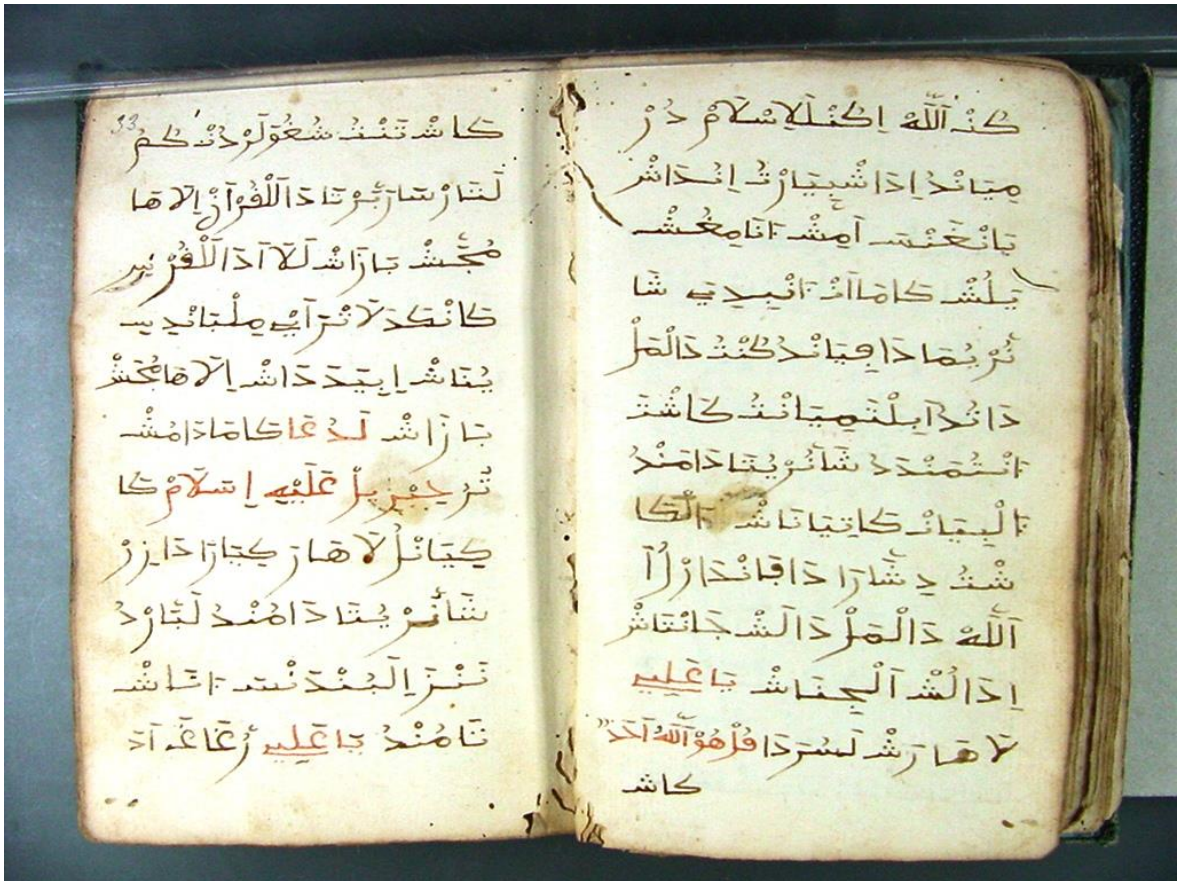 كُنْ اَللَّهْ اِكُنْ لَاِسْلَامْ دُرْ
مِيَانْدُ اِذَاشْبِيَارْتُ اِنْدَاشْ
بَانْغَنْسَ اَمِشْ اَنَامِغُشْ
بَلُشْ كَامَاآنْ اَنْبِدِيَ شَا
نُرْ يُمَاذَا جِيَانْدُ كُنْتُ ذَالْمَلْ
ذَاتُدُ اَبِلْتَمِيَانْتُ كَاشْتَ
شَانُرْ يُتَاذَامَنْدُ
اَلْبِيَانْ كَانِيَاتَاشْ اَلْكَا
شْتُ دِشَّارَا ذَافَانْدَارْلُ آ
اَللَّهْ ذَالْمَلْ ذَالَشْ جَانْتَاشْ
اِذَالُشْ اَلْجِنَاشْ يَا عَلِي
لَا هَارَشْ لَسُرَ ذَا قُلْ هُوَ اَللَّهُ اَحَدْ
كاش
33
كَاشْ تَنْتُ شُغُوَلَرْدُنْ كُمُ
لَتَارْسَارَبَّرْتَا ذَاَللْقُرْآنْ اِلَاهَا
مُجَّشْ بَازَاشْ لَلَااَذَاَللْقُرْسِي
كَانْكَدَلَانْرَآيْ مِلْبَانْدِيسِ
يُنَاشْ اِبِيَدَذَاشْ اِلَاهَامُجَّشْ
بَازَاشْ لَدُعَا كَامَاذَامُشْ
تُرُ جِبْرِيلْ عَلَيْهِ اِسَلَامْ كَا
كِيَانْلُ لَا هَارَ كِيَارَا ذَازِرْ
شَانُرْ يُتَاذَامُنْدُ لَبَّارْدُ
نَنْزَ اِلَبُنْدَنْسَ اَشَاشْ
تَامُنْدُ يَا عَلِي رُغَاغَ اَذَ